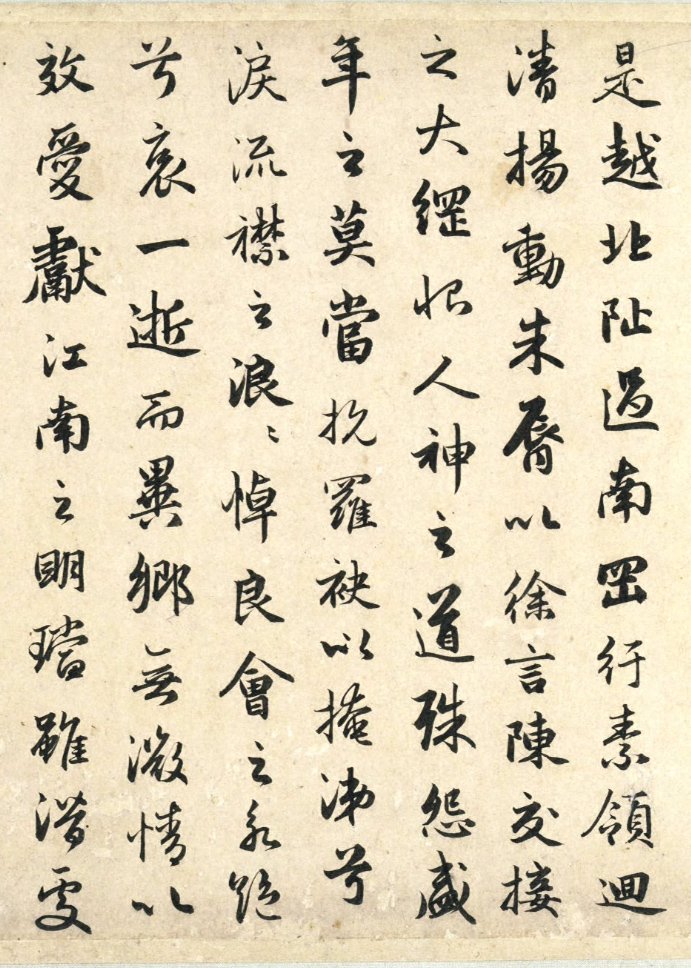 是越北阯過南岡行素領迴
清揚動朱脣以徐言陳交接
之大綱恨人神之道殊怨盛
年之莫當抗羅袂以掩涕兮
淚流襟之浪〻悼良會之永絕
兮哀一逝而異鄉無微情以
效愛獻江南之明璫雖潛處